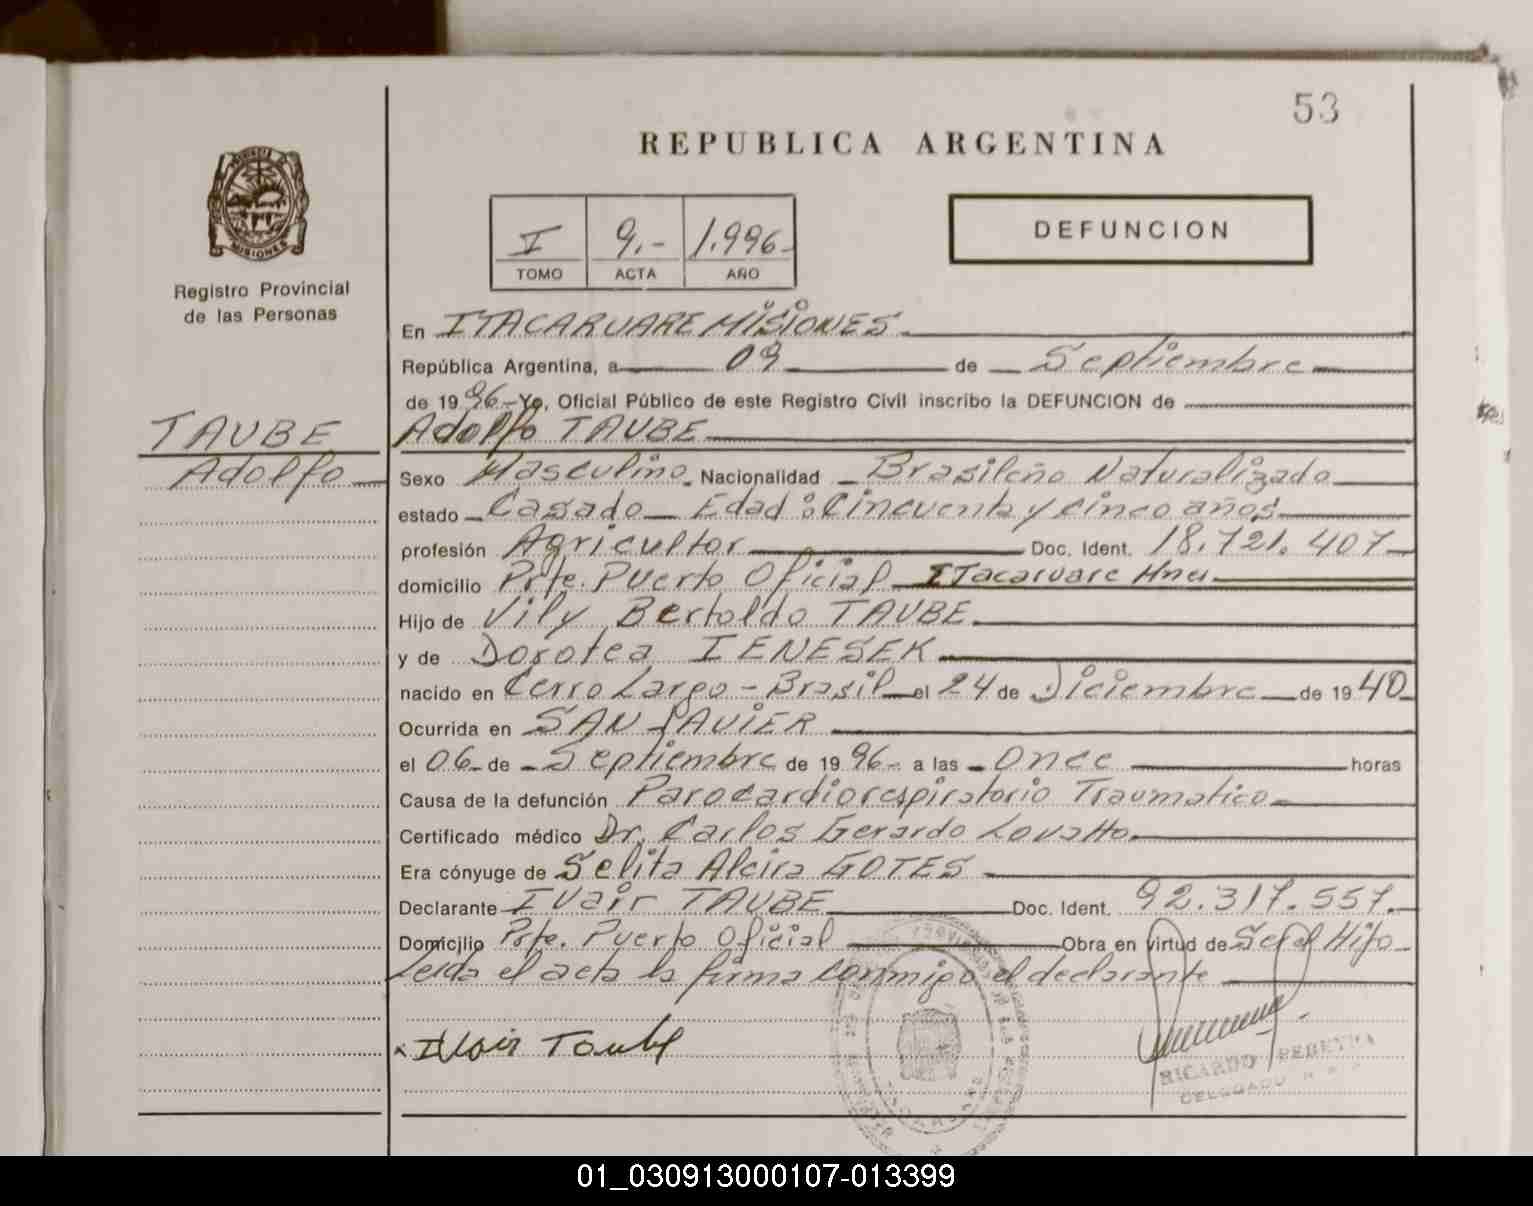 53
REPUBLICA ARGENTINA
PROVINCIA DE
MISIONES
Registro Provincial
de las Personas
I 9.- 1.996-
TOMO ACTA AÑO
DEFUNCION
En ITACARUARE MISIONES.
República Argentina, a 09 de Septiembre
de 1996.- Yo, Oficial Público de este Registro Civil inscribo la DEFUNCION de
TAUBE
Adolfo
Adolfo TAUBE
Sexo Masculino. Nacionalidad Brasileño Naturalizado
estado Casado Edad: Cincuenta y cinco años
profesión Agricultor Doc. Ident. 18.721.407
domicilio Prte. Puerto Oficial ITacaruare Mnes
Hijo de Vily Bertoldo TAUBE.
y de Dorotea IENESEK
nacido en Cerro Largo - Brasil el 24 de Diciembre de 1940
Ocurrida en SAN JAVIER
el 06 de Septiembre de 1996- a las Once horas
Causa de la defunción Parocardiorespiratorio Traumatico
Certificado médico Dr. Carlos Gerardo Lovatto.
Era cónyuge de Selita Alcira GOTES
Declarante Ivair TAUBE Doc. Ident. 92.317.557.
Domicilio Prte. Puerto Oficial Obra en virtud de Ser el Hijo
Leida el acta la firma conmigo el declarante
Ivair Taube
RICARDO
DELEGADO
01_030913000107-013399